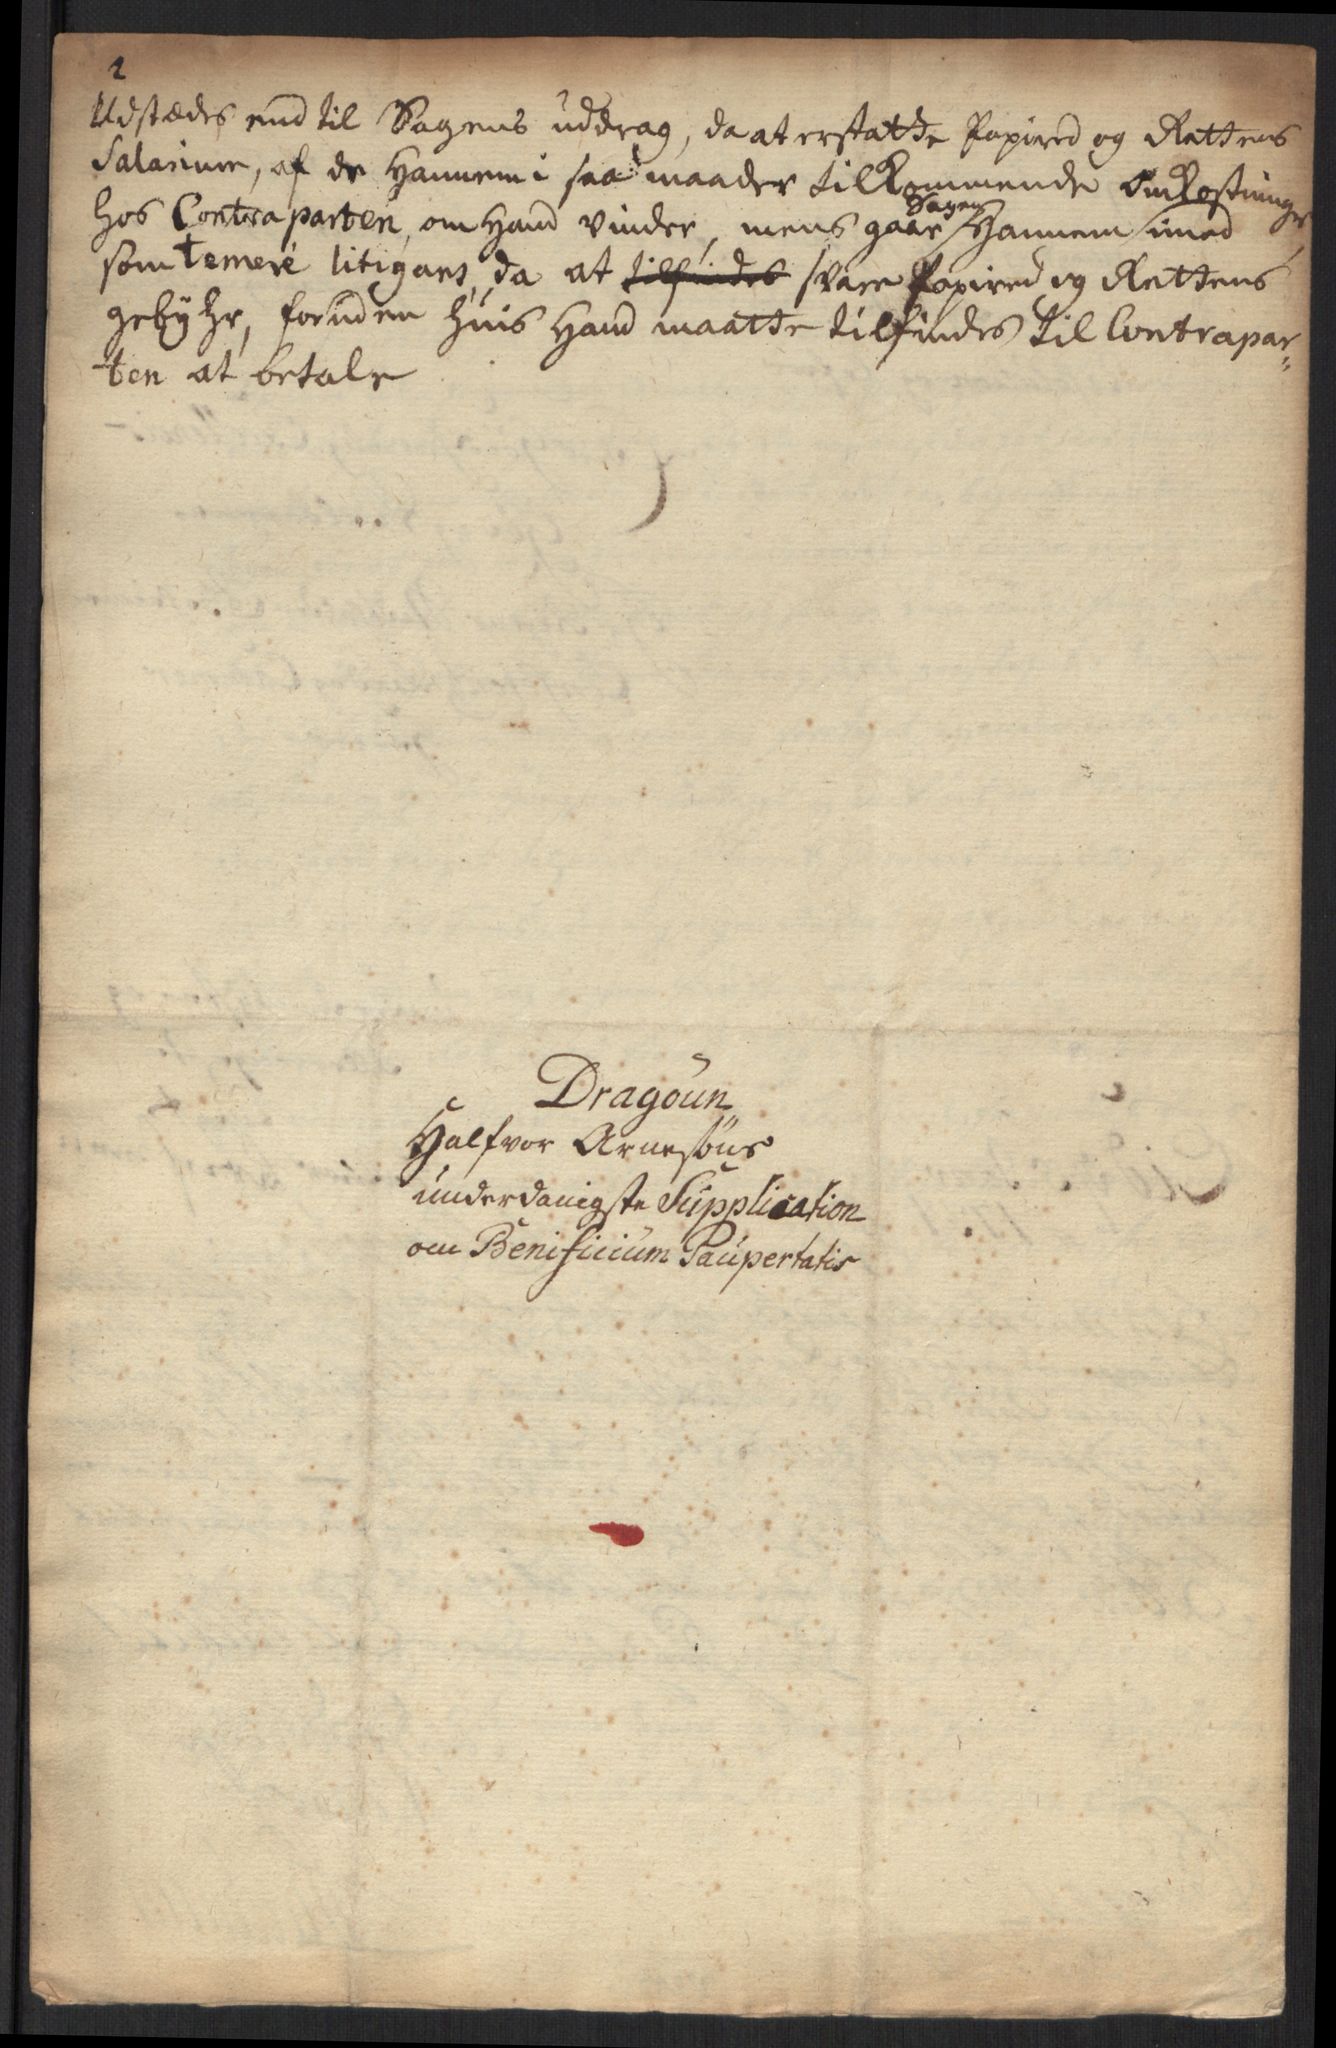 2
Udstædes end til Sagens uddrag, da at erstatte Papired og Rettens
Salarium, af de Hannem i saa maader tilkommende Omkostninger
hos Contraparten, om Hand vinder, mens gaar Sagen Hannem imod
som temerè litigans, da at tilfindes svare Papired og Rettens
gebyhr, foruden huis Hand maatte tilfindes til Contrapar„
ten at betale
Dragoun
Halfvor Arnesøns
underdanigste Supplication
om Benificium Paupertatis